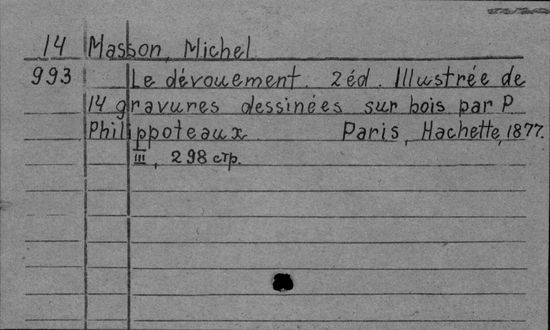 14 Masson, Michel
993 Le dévouement. 2 éd. Illustrée de
14 gravures dessinées sur bois par P
Philippoteaux Paris, Hachette, 1877.
III, 298 стр.